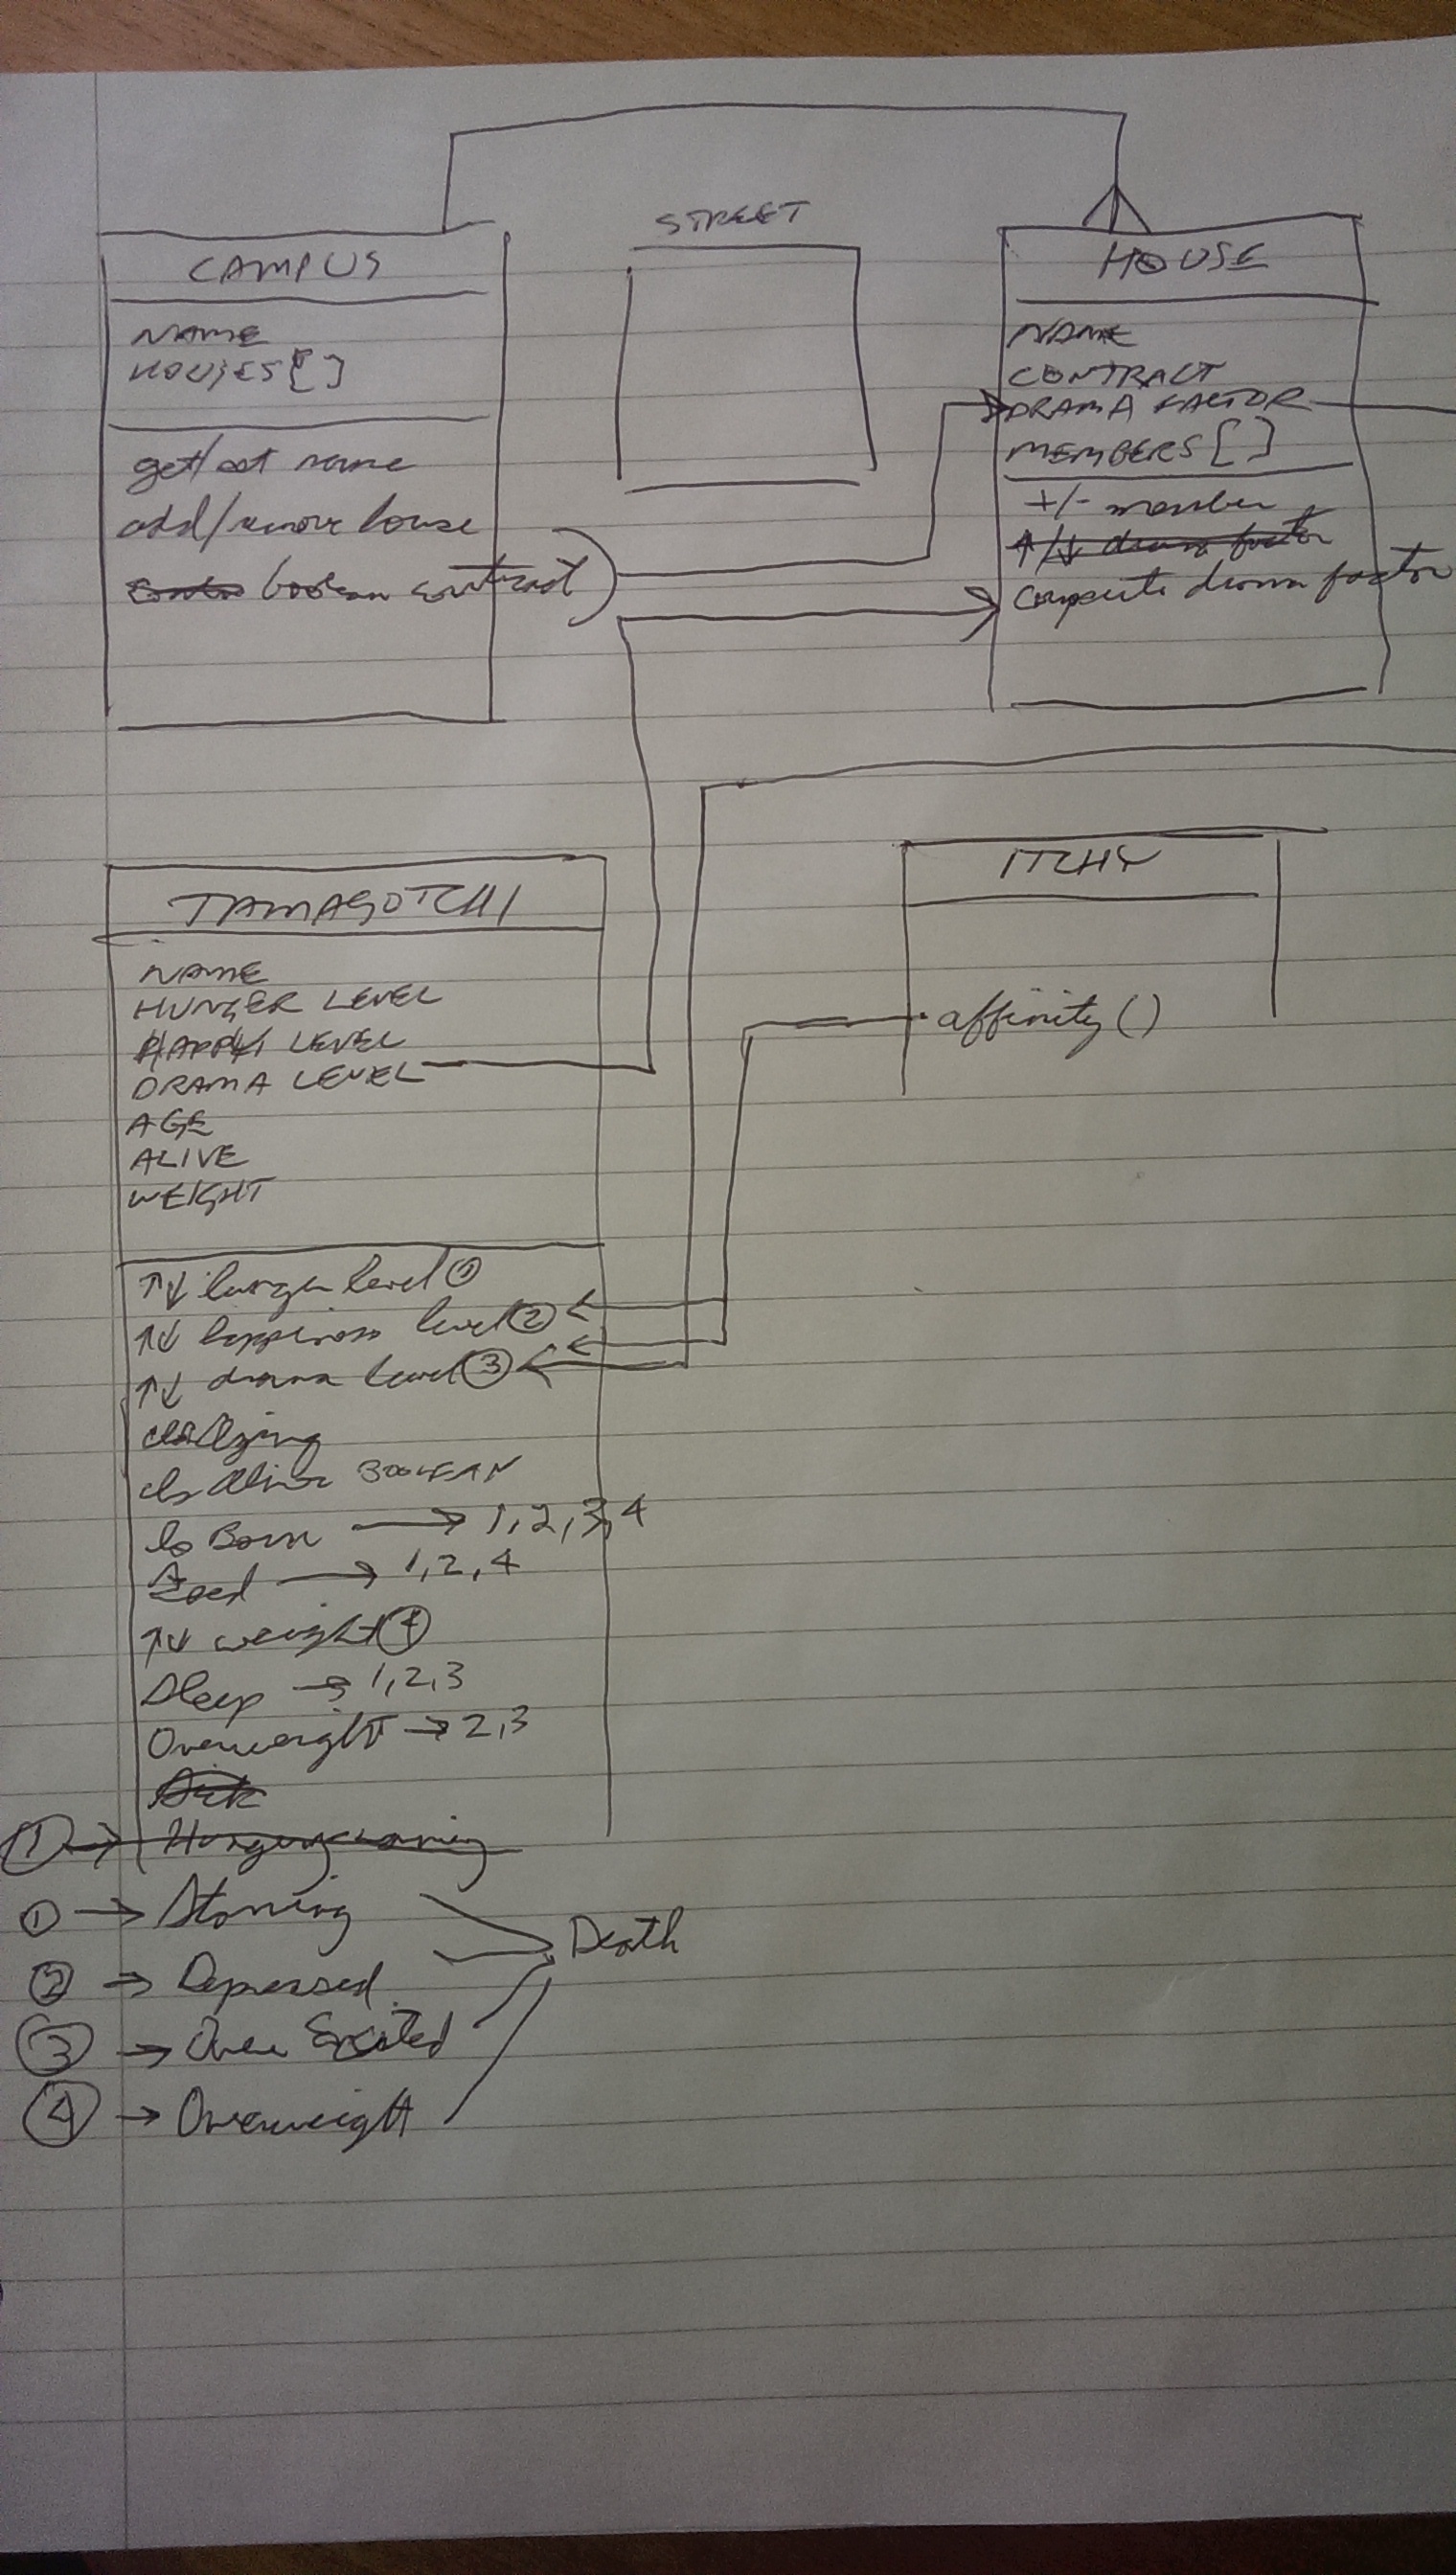 CAMPUS
NAME
HOUSES[]
get/set name
add/remove house
boolean contract
STREET
HOUSE
NAME
CONTRACT
DRAMA FACTOR
MEMBERS[]
+/- member
↑/↓ drama factor
compute drama factor
TAMAGOTCHI
NAME
HUNGER LEVEL
HAPPY LEVEL
DRAMA LEVEL
AGE
ALIVE
WEIGHT
↑↓ hunger level ①
↑↓ happiness level ②
↑↓ drama level ③
isAlive BOOLEAN
is Born → 1,2,3,4
Feed → 1,2,4
↑↓ weight ④
Sleep → 1,2,3
Overweight → 2,3
Sick
① → Hungry
① → Starving
② → Depressed
③ → Over Excited
④ → Overweight
Death
ITCHY
affinity()